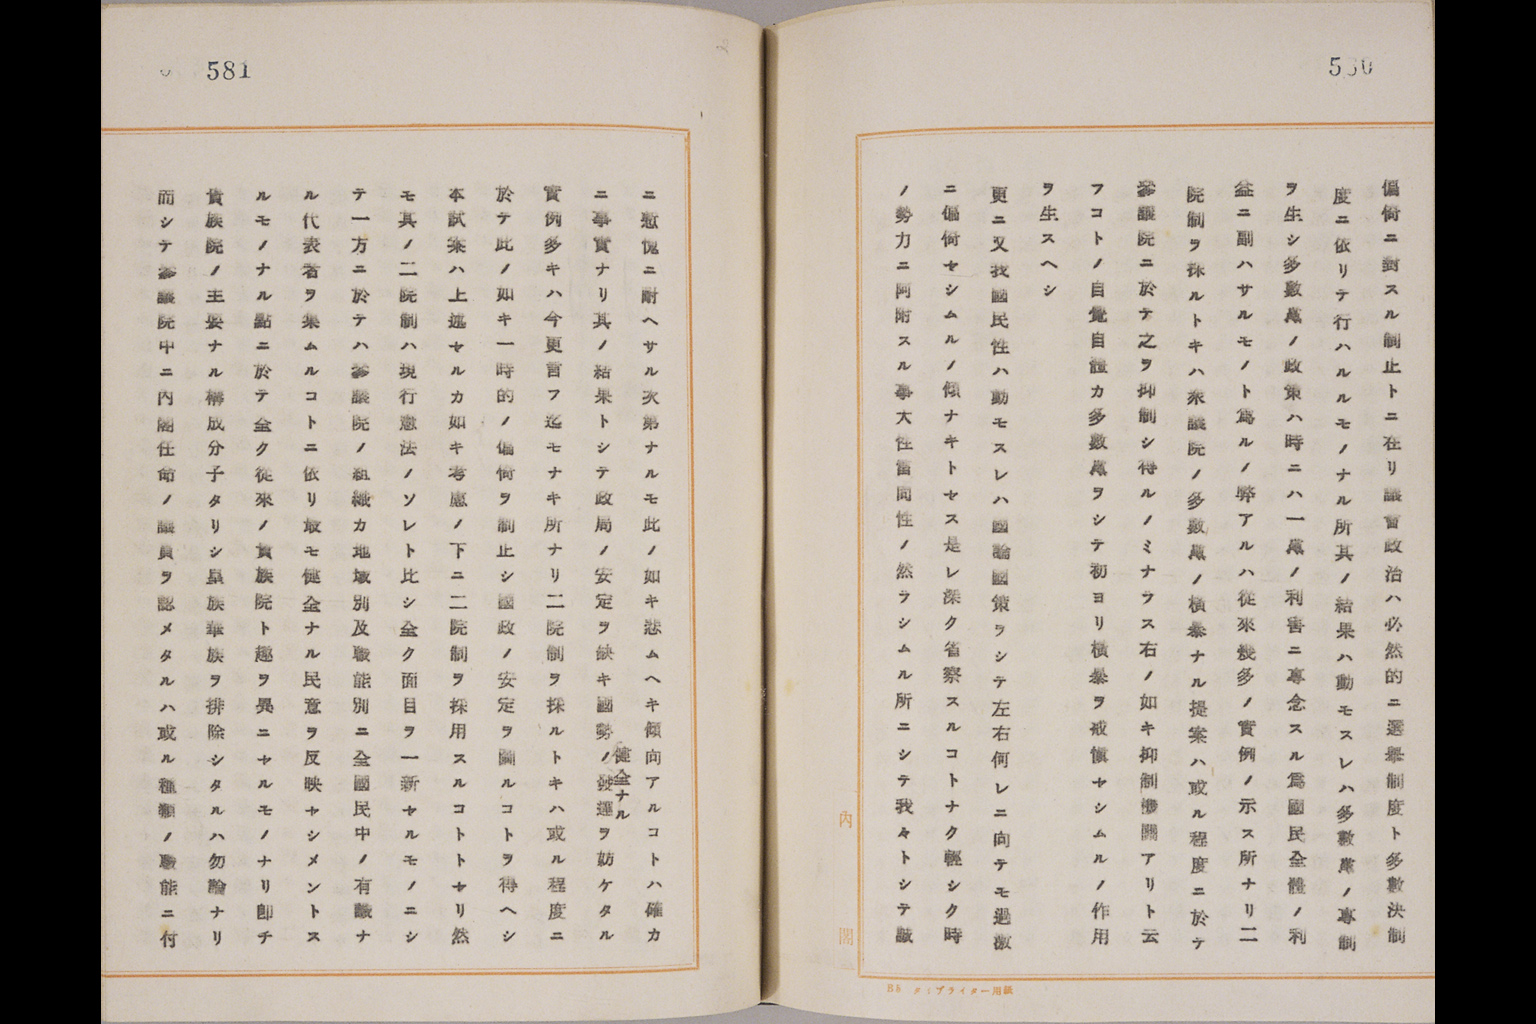 580
偏倚ニ對スル制止トニ在リ議會政治ハ必然的ニ選擧制度ト多數決制
度ニ依リテ行ハルルモノナル所其ノ結果ハ動モスレハ多數黨ノ專制
ヲ生シ多數黨ノ政策ハ時ニハ一黨ノ利害ニ專念スル爲國民全體ノ利
益ニ副ハサルモノト爲ルノ弊アルハ從來幾多ノ實例ノ示ス所ナリ二
院制ヲ採ルトキハ衆議院ノ多數黨ノ橫暴ナル提案ハ或ル程度ニ於テ
參議院ニ於テ之ヲ抑制シ得ルノミナラス右ノ如キ抑制機關アリト云
フコトノ自覺自體カ多數黨ヲシテ初ヨリ橫暴ヲ戒愼セシムルノ作用
ヲ生スヘシ
更ニ又我國民性ハ動モスレハ國論國策ヲシテ左右何レニ向テモ過激
ニ偏倚セシムルノ傾ナキトセス是レ深ク省察スルコトナク輕シク時
ノ勢力ニ阿附スル事大性雷同性ノ然ラシムル所ニシテ我々トシテ誠
內閣
B5 タイプライター用紙
581
ニ慙愧ニ耐ヘサル次第ナルモ此ノ如キ悲ムヘキ傾向アルコトハ確カ
ニ事實ナリ其ノ結果トシテ政局ノ安定ヲ缺キ國勢ノ發運ヲ妨ケタル
健全ナル
實例多キハ今更言フ迄モナキ所ナリ二院制ヲ採ルトキハ或ル程度ニ
於テ此ノ如キ一時的ノ偏倚ヲ制止シ國政ノ安定ヲ圖ルコトヲ得ヘシ
本試案ハ上述セルカ如キ考慮ノ下ニ二院制ヲ採用スルコトトセリ然
モ其ノ二院制ハ現行憲法ノソレト比シ全ク面目ヲ一新セルモノニシ
テ一方ニ於テハ參議院ノ組織カ地域別及職能別ニ全國民中ノ有識ナ
ル代表者ヲ集ムルコトニ依リ最モ健全ナル民意ヲ反映セシメントス
ルモノナル點ニ於テ全ク從來ノ貴族院ト趣ヲ異ニセルモノナリ卽チ
貴族院ノ主要ナル構成分子タリシ皇族華族ヲ排除シタルハ勿論ナリ
而シテ參議院中ニ內閣任命ノ議員ヲ認メタルハ或ル種類ノ職能ニ付